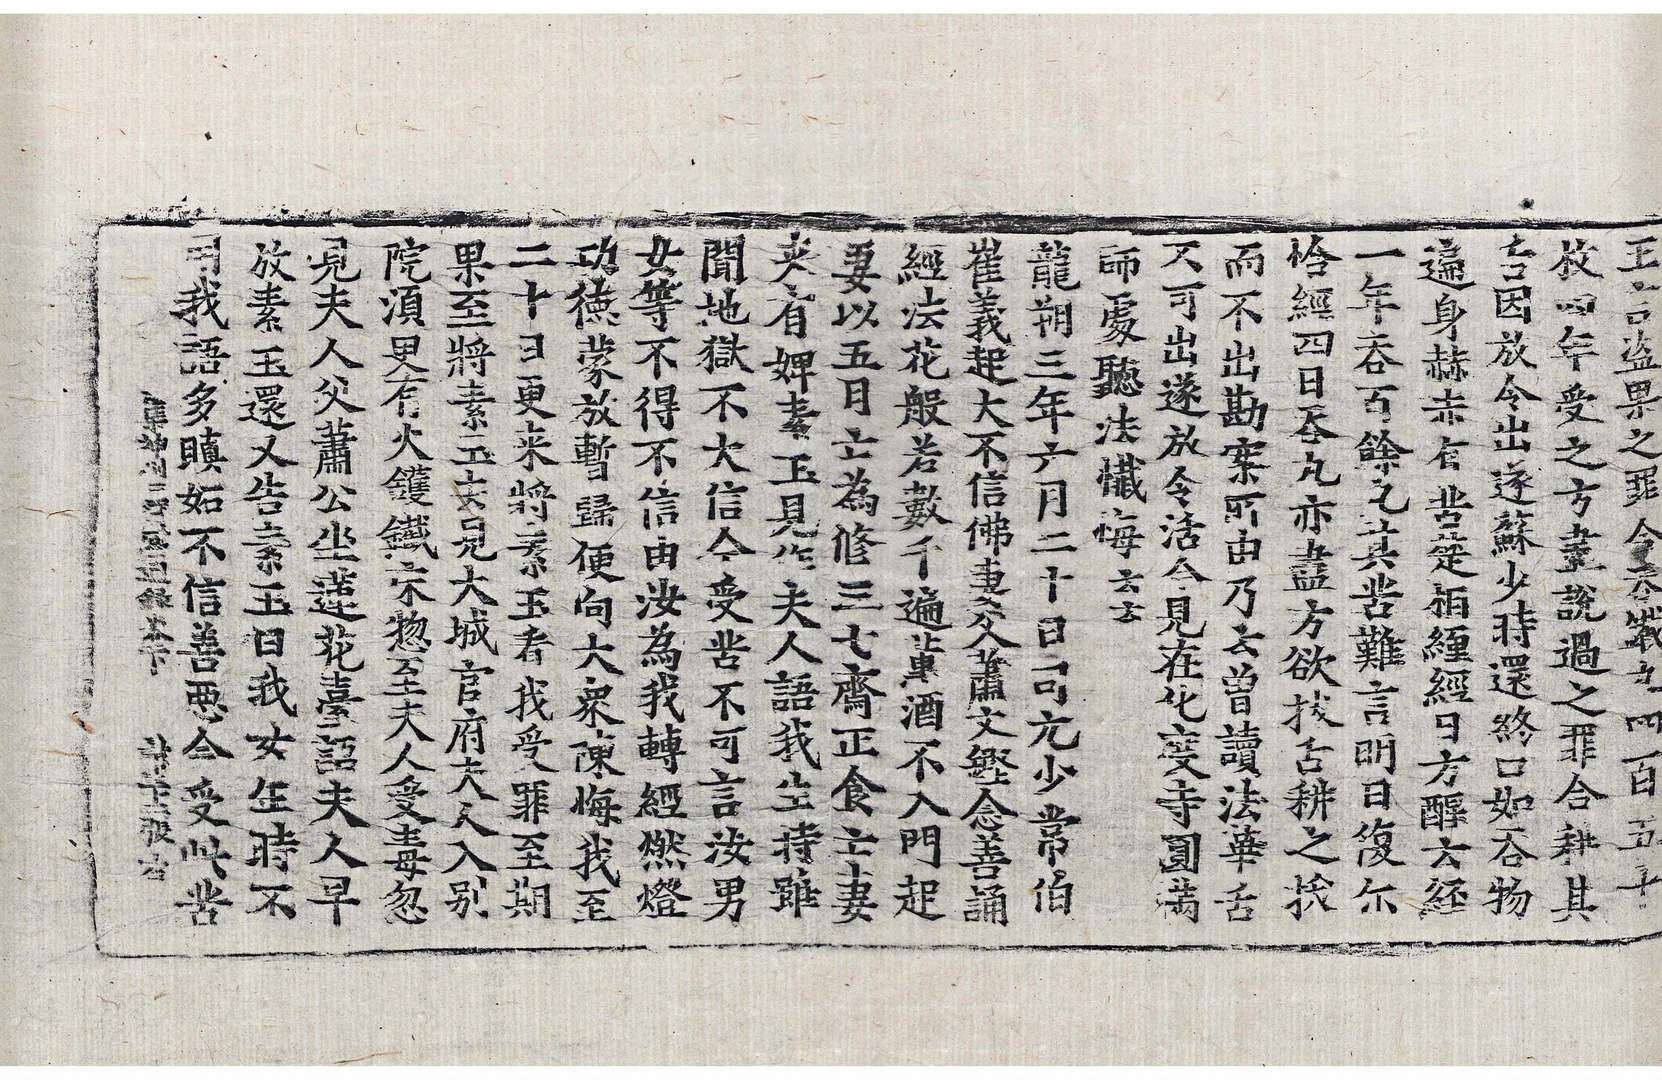 王言盗果之罪今吞鐵丸四百五十
枚四年受之方盡說過之罪合耕其
舌因放令出遂蘇少時還終口如吞物
遍身赫赤有苦楚相纏經日方醒云經
一年吞百餘丸其苦難言明日復尒
恰經四日吞丸亦盡方欲拔舌耕之挨
而不出勘案所由乃云曾讀法華舌
不可出遂放令活今見在化度寺圓滿
師處聽法懺悔云云
龍朔三年六月二十日司元少常伯
崔義起大不信佛妻父蕭文鏗念善誦
經法花般若數千遍葷酒不入門起
妻以五月亡為修三七齋正食亡妻
夾有婢素玉見作夫人語我生時雖
聞地獄不大信今受苦不可言汝男
女等不得不信由汝為我轉經燃燈
功德蒙放暫歸便向大衆陳悔我至
二十日更来將素玉者我受罪至期
果至將素玉去見大城官府夫人入别
院須臾有火鑊鐵床惣至夫人受毒忽
見夫人父蕭公坐蓮花臺語夫人早
放素玉還又告素玉曰我女生時不
用我語多瞋妬不信善惡今受此苦
集神州三寶感通錄卷下